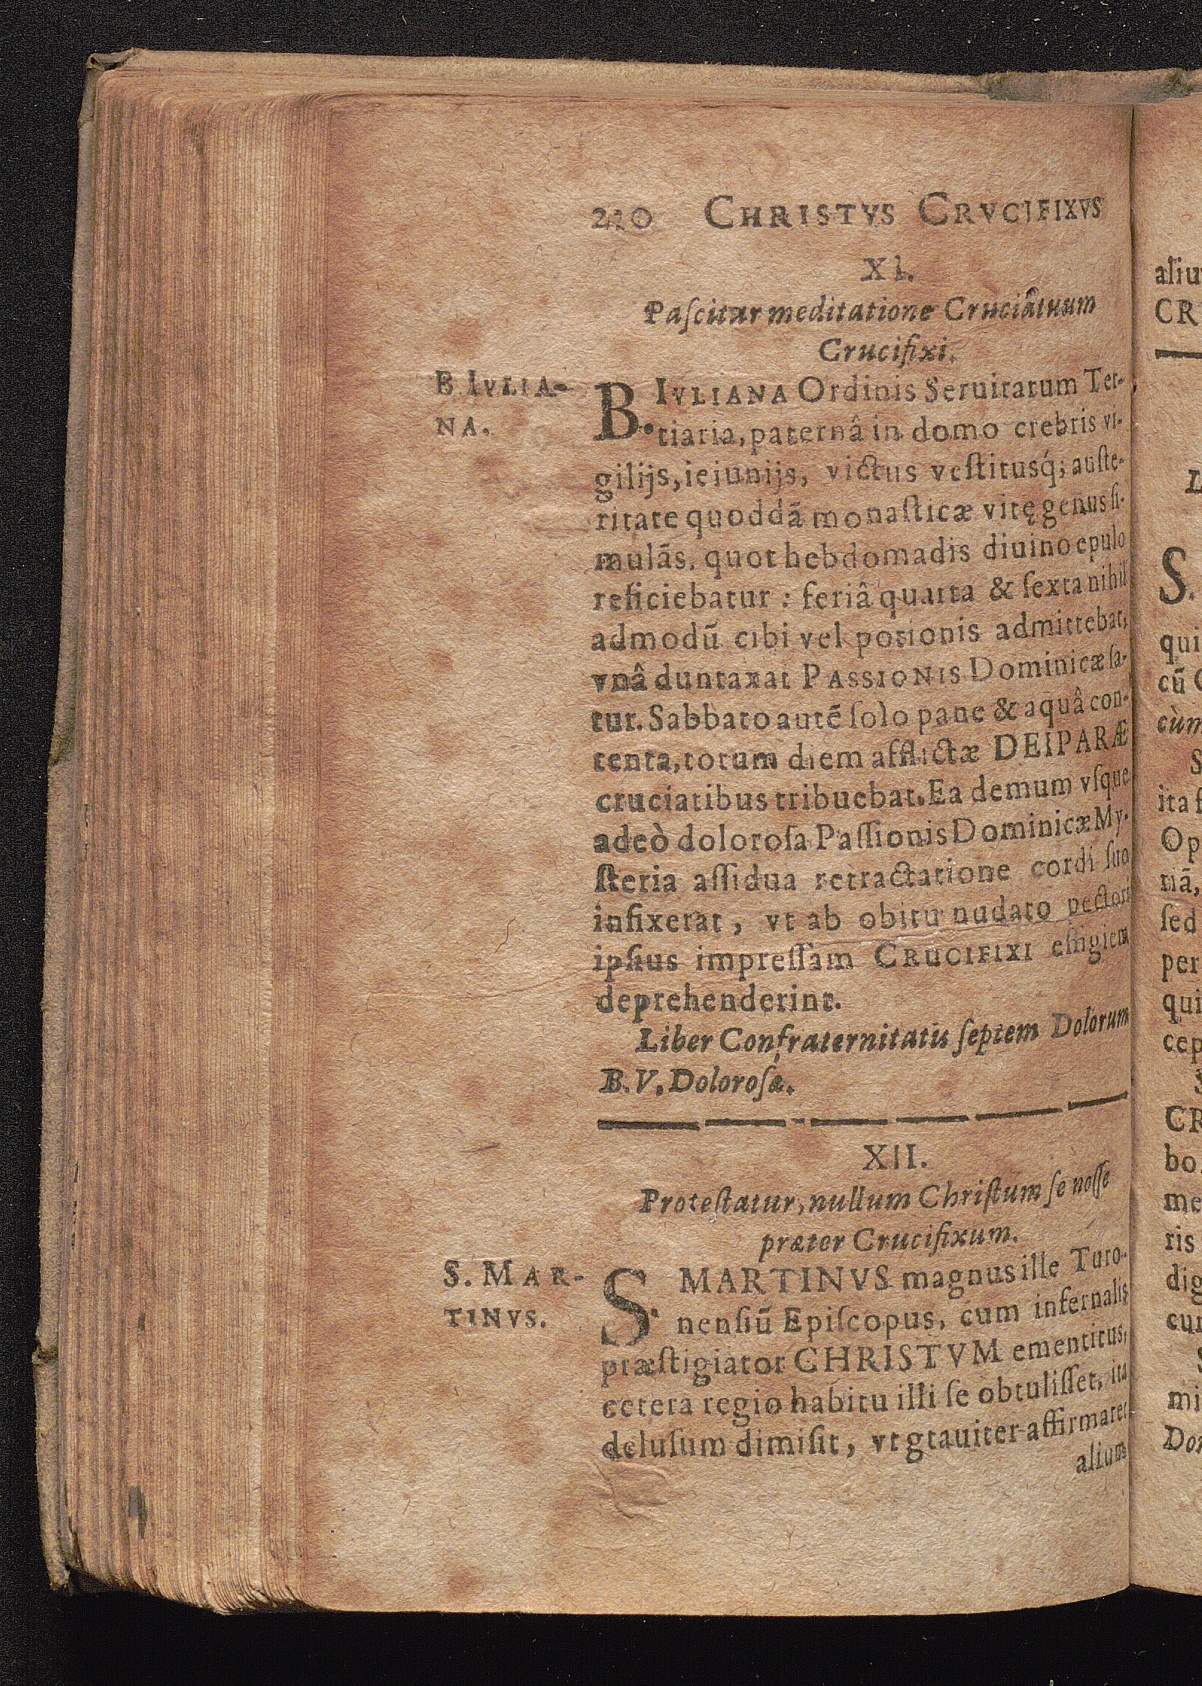 210 CHRISTVS CRVCIFIXVS
XI.
Paſcitur meditatione Cruciâtuum
Crucifixi.
B. IVLIA-
NA.
B. IVLIANA Ordinis Seruitarum Ter-
tiaria, paternâ in domo crebris vi-
gilijs, ieiunijs, victus veſtitusq́; auſte-
ritate quoddã monaſticæ vitę genus ſi-
mulãs, quot hebdomadis diuino epulo
reficiebatur : feriâ quarta & ſexta nihil
admodũ cibi vel potionis admittebat,
vnâ duntaxat PASSIONIS Dominicæ ſa-
tur. Sabbato autẽ ſolo pane & aquâ con-
tenta, totum diem afflictæ DEIPARÆ
cruciatibus tribuebat. Ea demum vſque
adeò doloroſa Paſſionis Dominicæ My-
ſteria aſſidua retractatione cordi ſuo
infixerat, vt ab obitu nudato pectori
ipſius impreſſam CRUCIFIXI effigiem
deprehenderint.
Liber Confraternitatũ ſeptem Dolorum
B. V. Doloroſæ.
XII.
Proteſtatur, nullum Chriſtum ſe noſſe
præter Crucifixum.
S. MAR-
TINVS.
S. MARTINVS magnus ille Turo-
nenſiũ Epiſcopus, cum infernalis
præſtigiator CHRISTVM ementitus,
cetera regio habitu illi ſe obtuliſſet, ita
deluſum dimiſit, vt grauiter affirmaret
alium
aliu
CR
L
S.
qui
cũ
cùm
S
ita
Op
nã,
ſed
per
qui
cep
CR
bo
me
ris
dig
cu
mi
Do